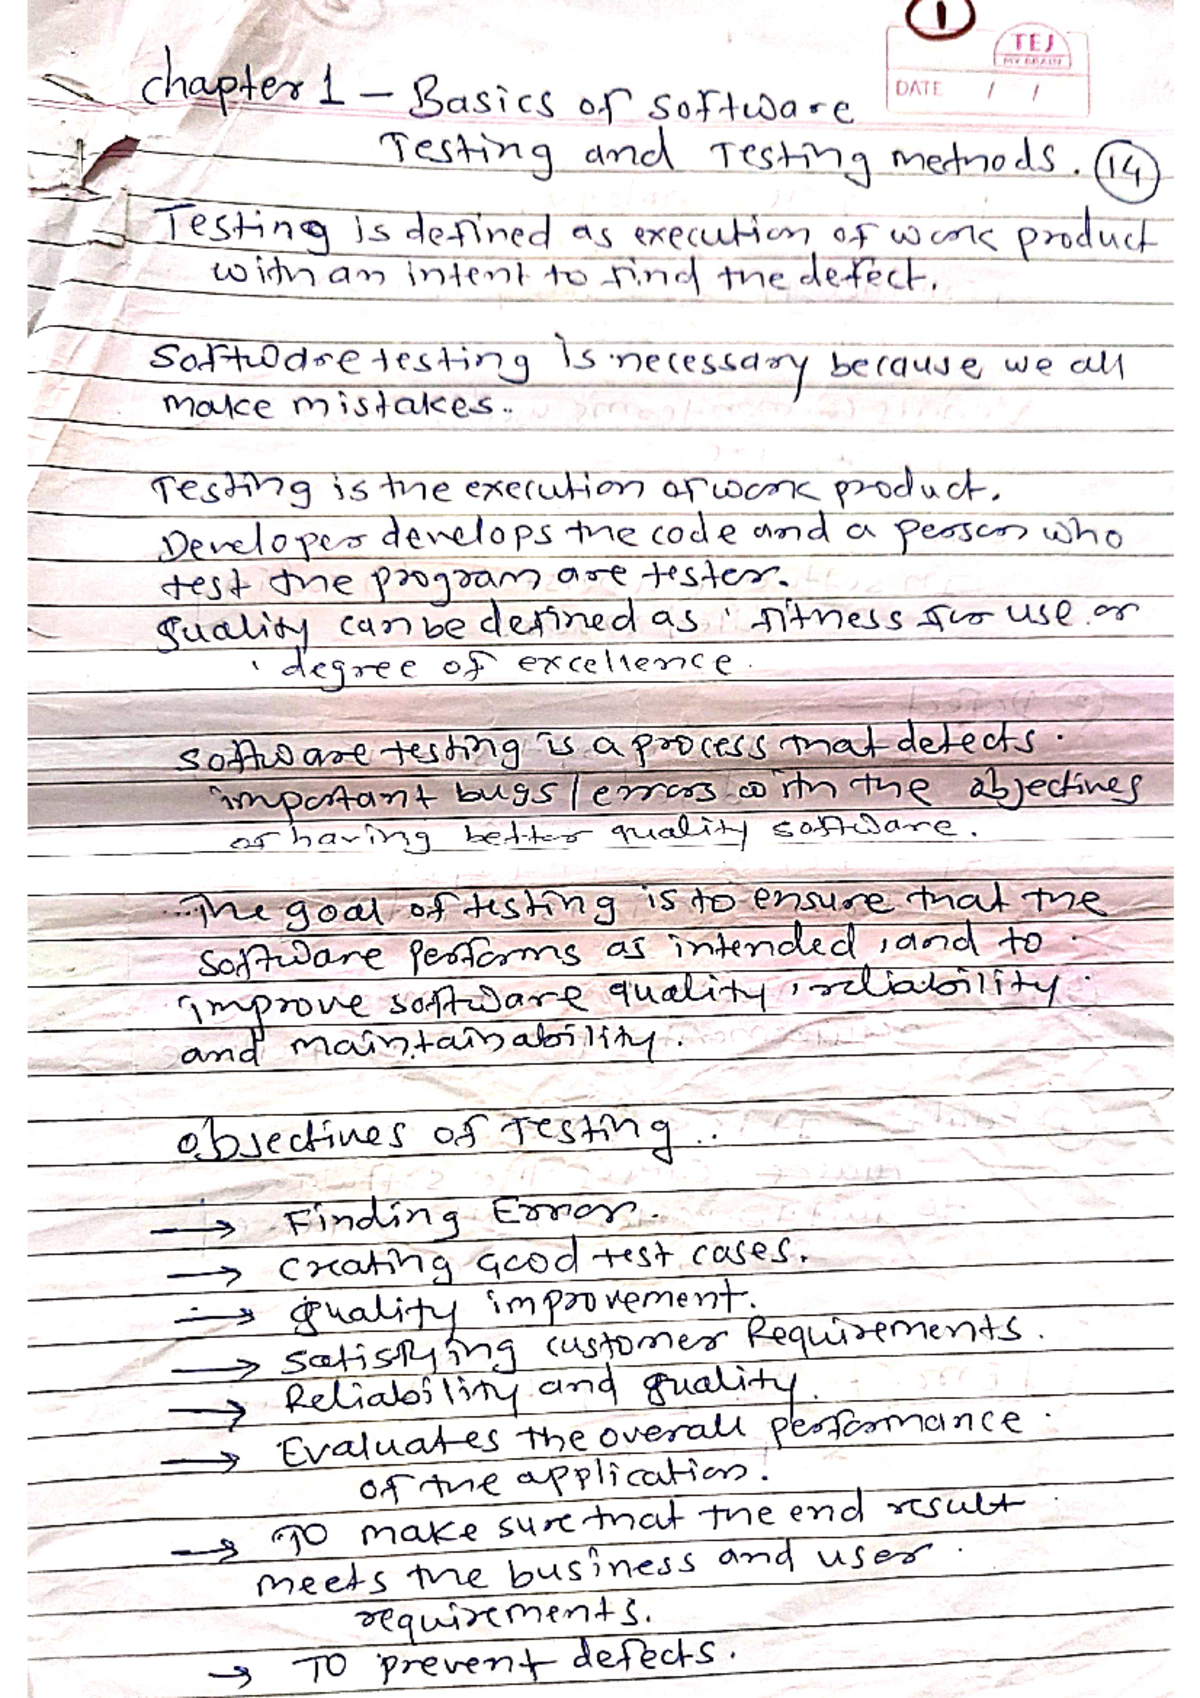 1
TEJ
MY BRAIN
DATE / /
Chapter 1 - Basics of Software
Testing and Testing methods. 14
Testing is defined as execution of work product
with an intent to find the defect.
Software testing is necessary because we all
make mistakes.
Testing is the execution of work product.
Developer develops the code and a person who
test the program are tester.
Quality can be defined as fitness for use or
degree of excellence.
Software testing is a process that detects
important bugs / errors with the objectives
of having better quality software.
The goal of testing is to ensure that the
software performs as intended, and to
improve software quality, reliability
and maintainability.
Objectives of Testing..
→ Finding Error.
→ Creating Good test cases.
→ Quality improvement.
→ Satisfying customer Requirements.
→ Reliability and quality.
→ Evaluates the overall performance
of the application.
→ To make sure that the end result
meets the business and user
requirements.
→ To prevent defects.